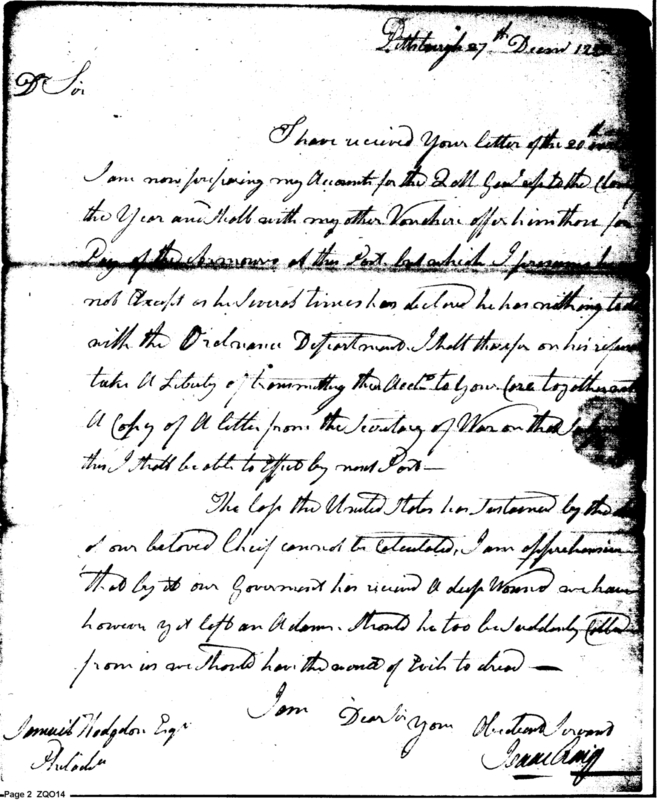 Pittsburgh 27th Decem
Dr Sir
I have received Your letter of the 20th
I am now preparing my Accounts for the Q M Genl up to the Close
the Year and shall with my other Vouchers offer him those for
Pay of the Armourers at this Post but which I presume he
not Except as he several times has declared he has nothing to do
with the Ordnance Department. I shall therefor on his refusal
take A Liberty of transmitting the Accts to Your Care together with
A Copy of A letter from the Secretary of War on that
this I shall be able to Effect by next Post—
The Loss the United States has sustained by the
of our beloved Cheif cannot be Calculated, I am apprehensive
that by it our Goverment has receivd A deep Wound we have
however yet left an Adams. Should he too be suddenly Called
from us we should have the worst of Evils to dread —
I am Dear Sir Your Obedient Servant
Isaac Craig
Samuel Hodgdon Esqr
Philada
Page 2 ZQO14